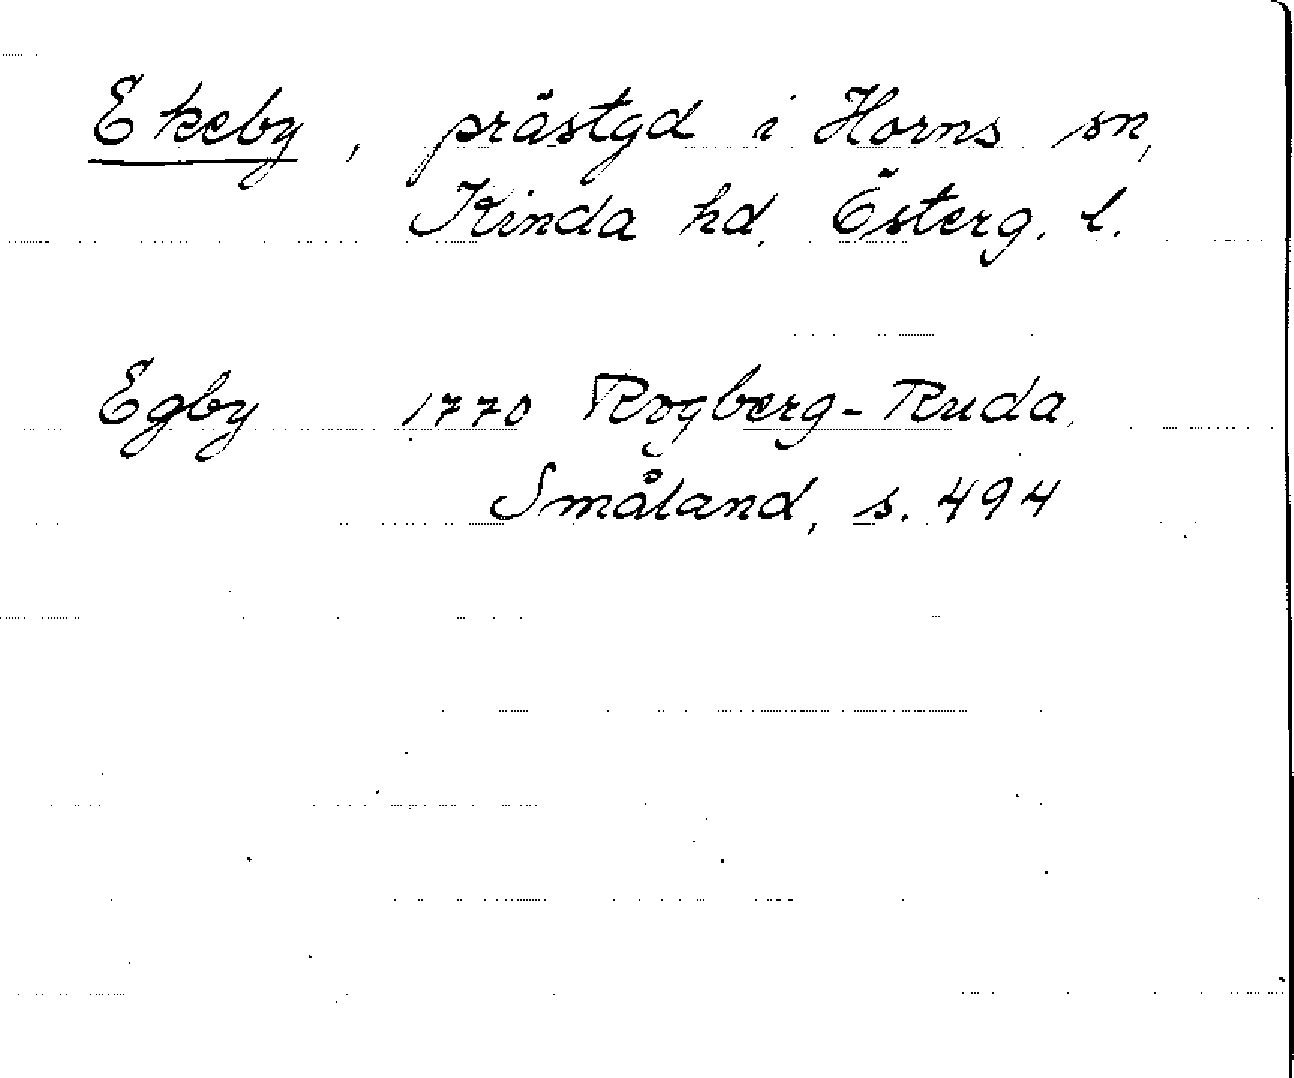 Ekeby, prästgd i Horns sn,
Kinda hd, Österg. l.
Egby 1770 Rogberg-Ruda,
Småland, s. 494